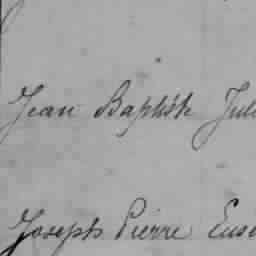 Jean Baptiste
Joseph Pierre